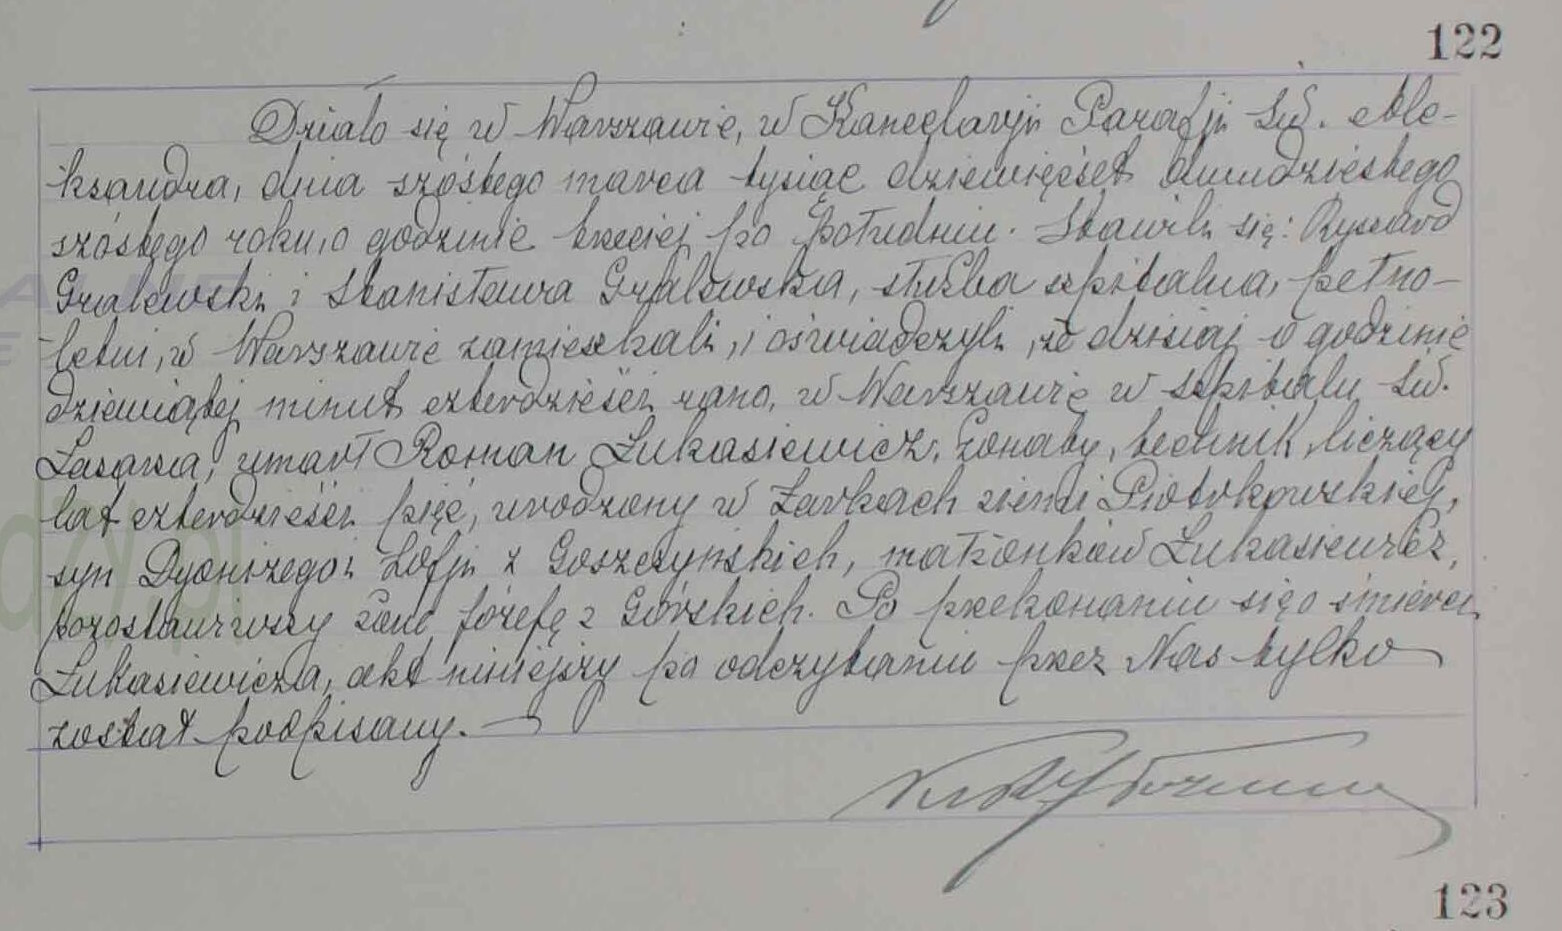 122
Działo się w Warszawie, w Kancelaryji Parafji Św. Ale-
ksandra, dnia szóstego marca tysiąc dziewięćset dwudziestego
szóstego roku, o godzinie trzeciej po południu. Stawili się: Ryszard
Grabowski i Stanisława Grabowska, służba szpitalna, pełno-
letni, w Warszawie zamieszkali, i oświadczyli, że dzisiaj o godzinie
dziewiątej minut czterdzieści rano, w Warszawie w szpitalu Św.
Łazarza, umarł Roman Łukasiewicz, żonaty, technik, liczący
lat czterdzieści pięć, urodzony w Żarkach ziemi Piotrkowskiej,
syn Dyonizego i Zofji z Goszczyńskich, małżonków Łukasiewicz,
pozostawiwszy żonę Józefę z Górskich. Po przekonaniu się o śmierci
Łukasiewicza, akt niniejszy po odczytaniu przez Nas tylko
został podpisany.
123